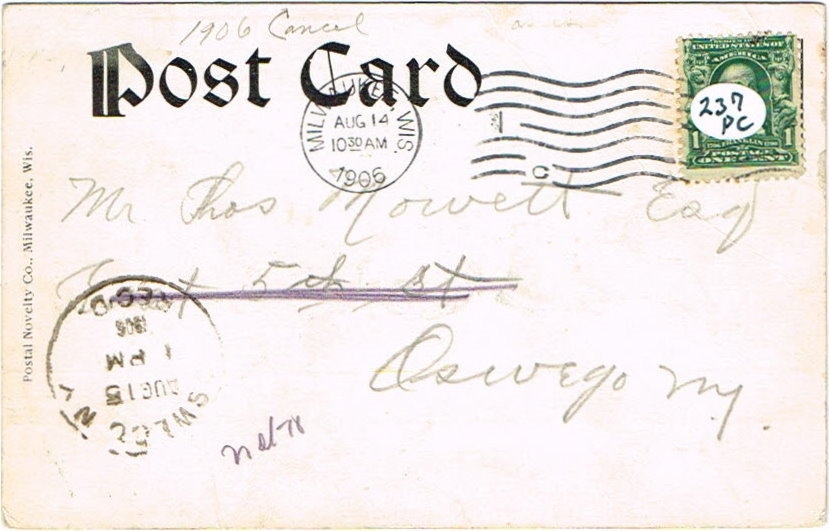 1906 Cancel
Post Card
MILWAUKEE, WIS.
AUG 14
10 30 AM
1906
C
UNITED STATES OF
AMERICA
237
PC
1 1
FRANKLIN
POSTAGE
ONE CENT
Mr Thos Mowett Esq
East 5th St
Oswego NY.
REC'D.
1906
1 PM
AUG 15
OSWEGO
N.Y.
Postal Novelty Co., Milwaukee, Wis.